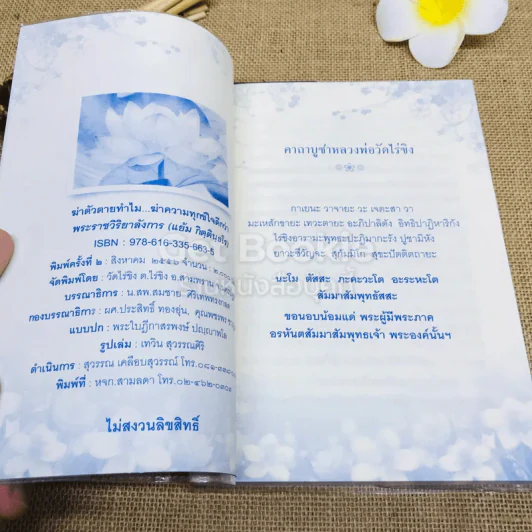 ฆ่าตัวตายทำไม...ฆ่าความทุกข์ใจดีกว่า
พระราชวิริยาลังการ (แย้ม กิตฺตินฺธโร)
ISBN : 978-616-335-663-5
พิมพ์ครั้งที่ ๒ : สิงหาคม
จัดพิมพ์โดย : วัดไร่ขิง ต.ไร่ขิง อ.สามพราน
บรรณาธิการ : น.สพ.สมชาย
กองบรรณาธิการ : ผศ.ประสิทธิ์ ทองอุ่น,
แบบปก : พระใบฎีกาสรพงษ์ ปญฺญาพโล
รูปเล่ม : เทวิน สุวรรณศิริ
ดำเนินการ : สุวรรณ เคลือบสุวรรณ์ โทร.
พิมพ์ที่ : หจก.สามลดา โทร.๐๒-๔๖๒-๐๓๐๓
ไม่สงวนลิขสิทธิ์
คาถาบูชาหลวงพ่อวัดไร่ขิง
กาเยนะ วาจายะ วะ เจตะสา วา
มะเหลักขายะ เทวะตายะ อะภิปาลิตัง อิทธิปาฏิหาริกัง
ไร่ขิงอารามะพุทธะปะฏิมากะรัง ปูชามิหัง
ยาวะชีวัญจะ สุกัมมิโก สุขะปัตติตถายะ
นะโม ตัสสะ ภะคะวะโต อะระหะโต
สัมมาสัมพุทธัสสะ
ขอนอบน้อมแด่ พระผู้มีพระภาค
อรหันตสัมมาสัมพุทธเจ้า พระองค์นั้นฯ